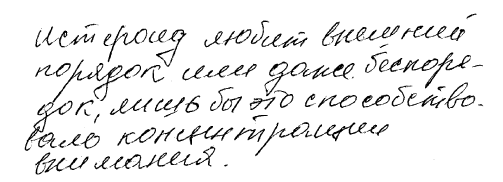 истероид любит внешний
порядок или даже беспоря-
док, лишь бы это способство-
вало концентрации
внимания.